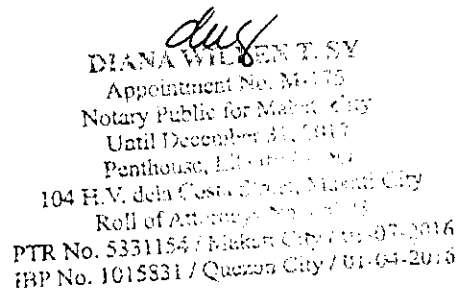 DIANA WILLEN T. SY
Appointment No. M-175
Notary Public for Makati City
Until December 31, 2017
Penthouse,
104 H.V. dela Costa Street, Makati City
Roll of Attorneys No.
PTR No. 5331154 / Makati City / 01-07-2016
IBP No. 1015831 / Quezon City / 01-04-2016